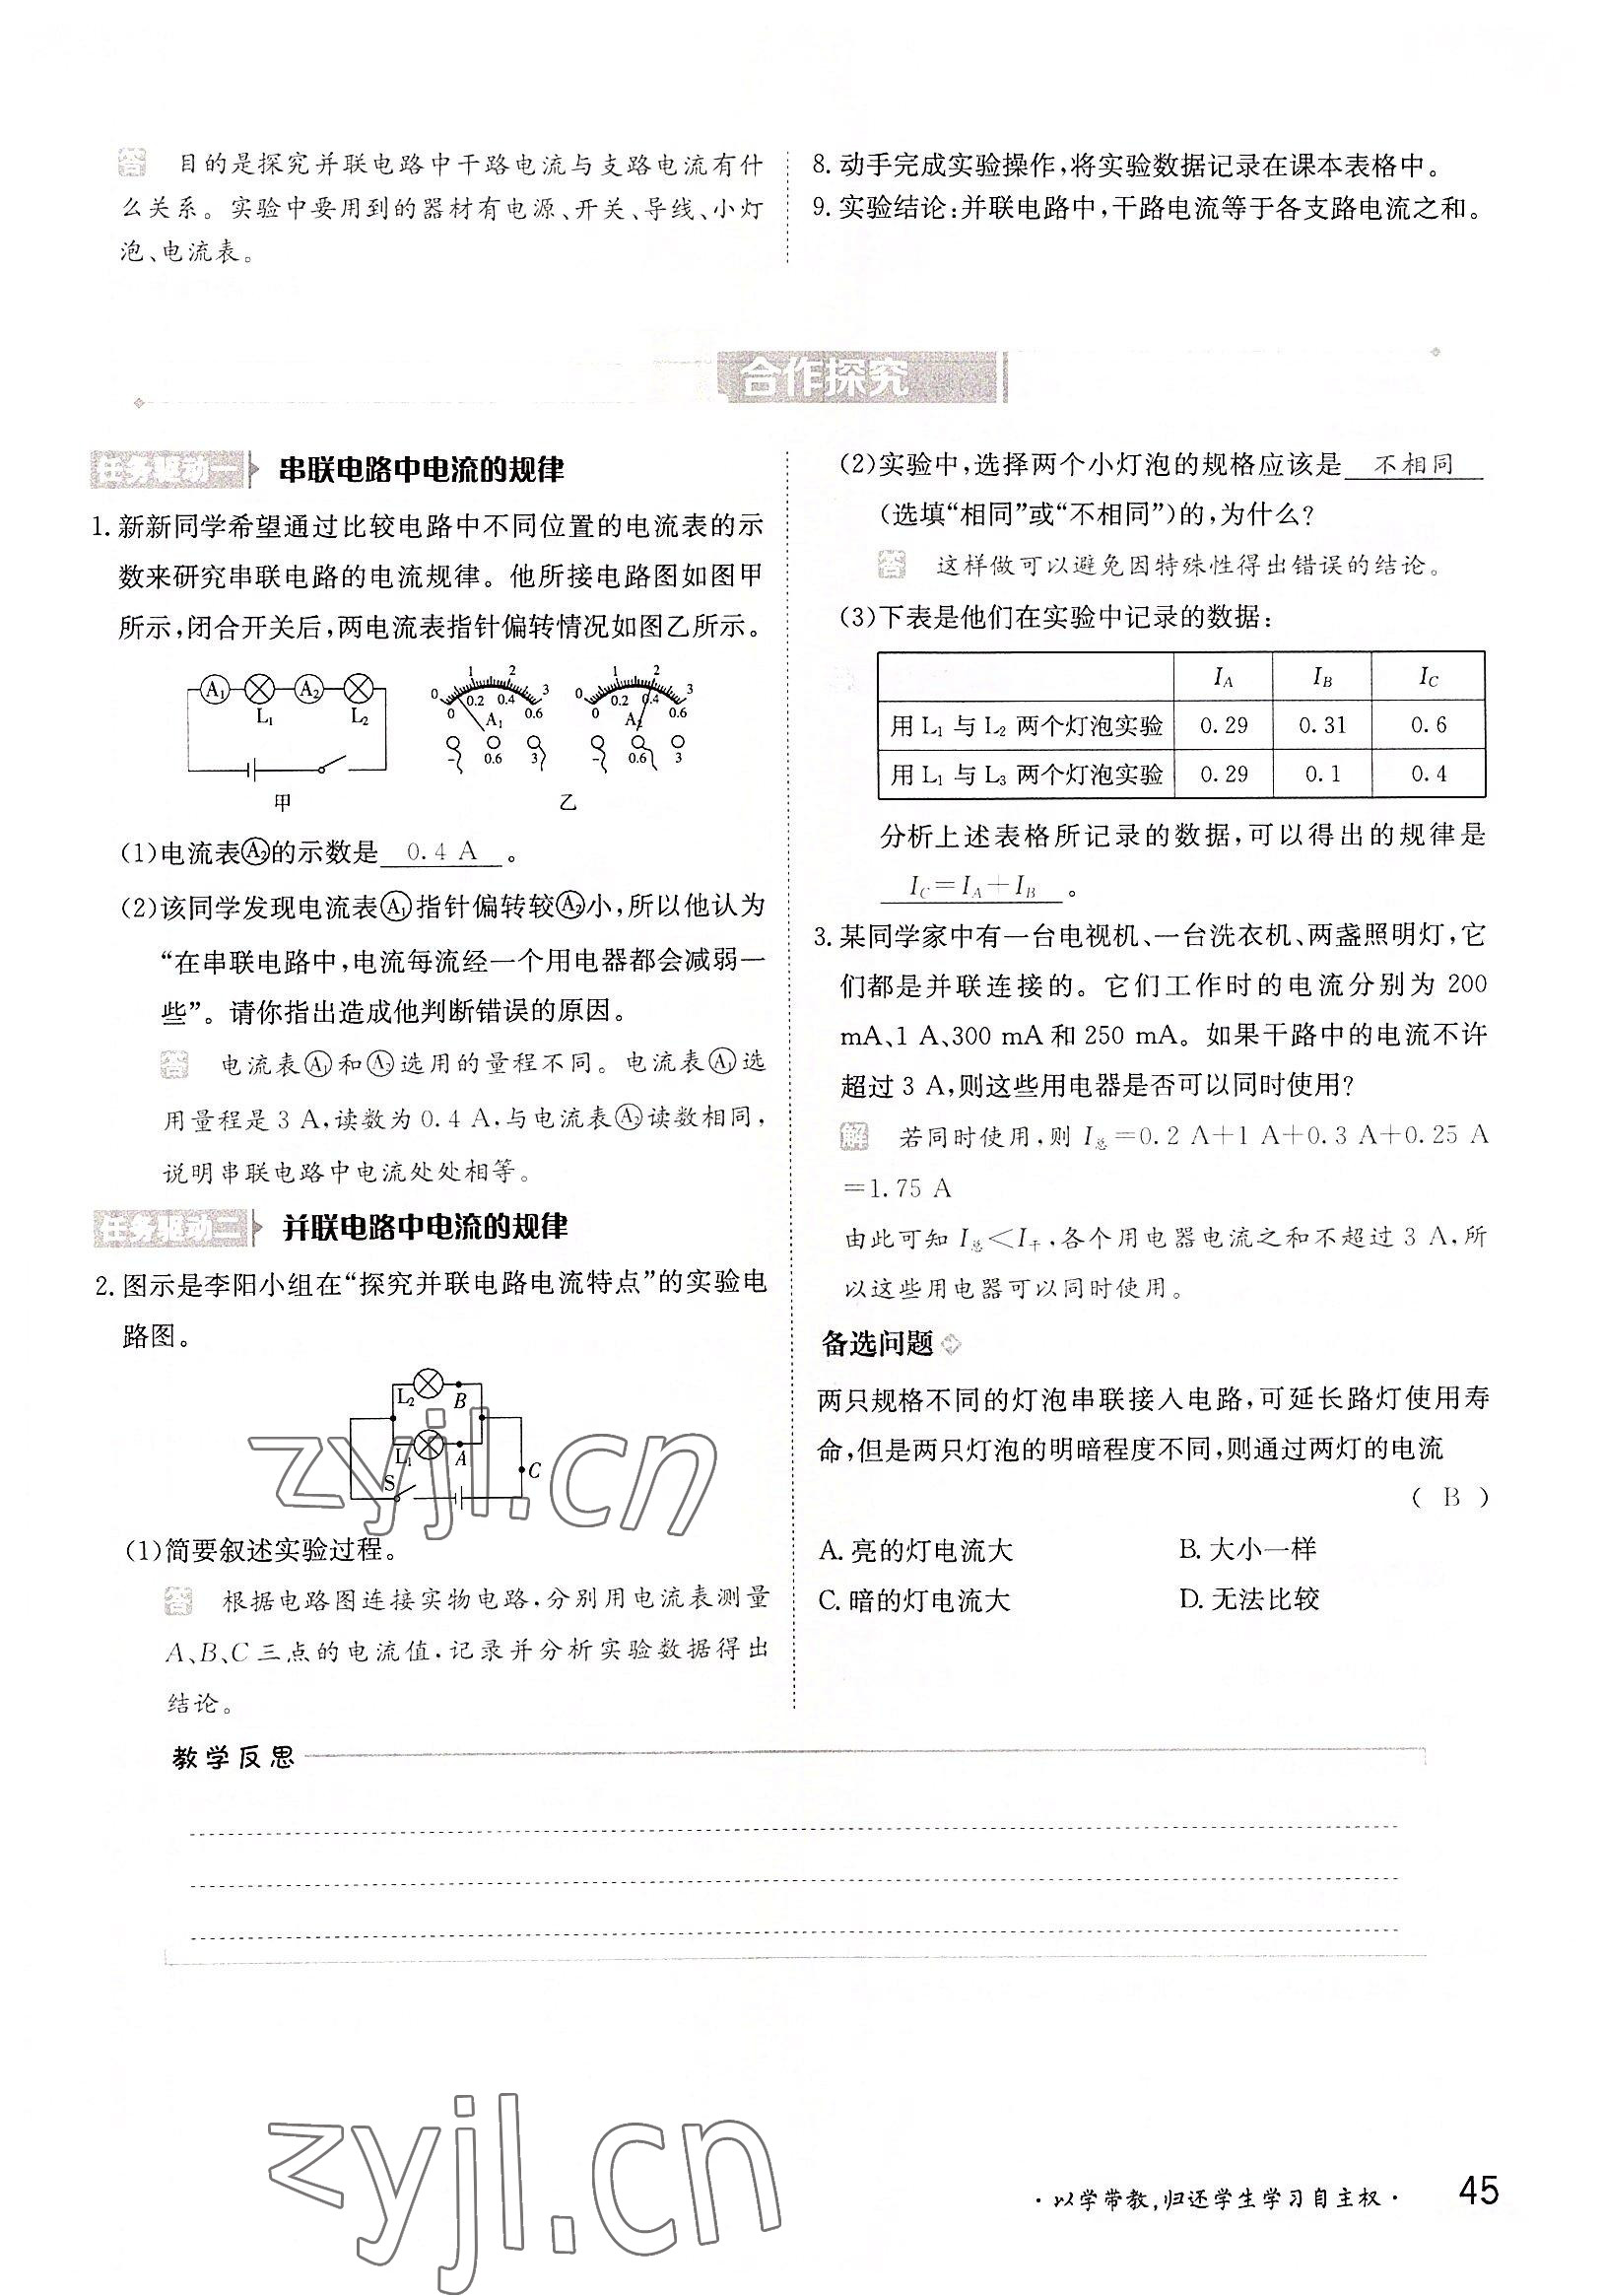 答 目的是探究并联电路中干路电流与支路电流有什
么关系。实验中要用到的器材有电源、开关、导线、小灯
泡、电流表。
8. 动手完成实验操作,将实验数据记录在课本表格中。
9. 实验结论:并联电路中,干路电流等于各支路电流之和。
合作探究
任务驱动一 串联电路中电流的规律
1. 新新同学希望通过比较电路中不同位置的电流表的示
数来研究串联电路的电流规律。他所接电路图如图甲
所示,闭合开关后,两电流表指针偏转情况如图乙所示。
A₁ A₂
L₁ L₂
甲
0 1 2 3
0 0.2 0.4 0.6
A₁
- 0.6 3
0 1 2 3
0 0.2 0.4 0.6
A₂
- 0.6 3
乙
(1)电流表A₂的示数是 0.4 A 。
(2)该同学发现电流表A₁指针偏转较A₂小,所以他认为
“在串联电路中,电流每流经一个用电器都会减弱一
些”。请你指出造成他判断错误的原因。
答 电流表A₁和A₂选用的量程不同。电流表A₁选
用量程是 3 A,读数为 0.4 A,与电流表A₂读数相同,
说明串联电路中电流处处相等。
任务驱动二 并联电路中电流的规律
2. 图示是李阳小组在“探究并联电路电流特点”的实验电
路图。
L₂ B
L₁ A
S C
(1)简要叙述实验过程。
答 根据电路图连接实物电路,分别用电流表测量
A、B、C 三点的电流值,记录并分析实验数据得出
结论。
(2)实验中,选择两个小灯泡的规格应该是 不相同
(选填“相同”或“不相同”)的,为什么?
答 这样做可以避免因特殊性得出错误的结论。
(3)下表是他们在实验中记录的数据:
I_A I_B I_C
用 L₁ 与 L₂ 两个灯泡实验 0.29 0.31 0.6
用 L₁ 与 L₃ 两个灯泡实验 0.29 0.1 0.4
分析上述表格所记录的数据,可以得出的规律是
I_C=I_A+I_B 。
3. 某同学家中有一台电视机、一台洗衣机、两盏照明灯,它
们都是并联连接的。它们工作时的电流分别为 200
mA、1 A、300 mA 和 250 mA。如果干路中的电流不许
超过 3 A,则这些用电器是否可以同时使用?
解 若同时使用,则 I总=0.2 A+1 A+0.3 A+0.25 A
=1.75 A
由此可知 I总<I干,各个用电器电流之和不超过 3 A,所
以这些用电器可以同时使用。
备选问题
两只规格不同的灯泡串联接入电路,可延长路灯使用寿
命,但是两只灯泡的明暗程度不同,则通过两灯的电流
( B )
A. 亮的灯电流大 B. 大小一样
C. 暗的灯电流大 D. 无法比较
教学反思
zyjl.cn
zyjl.cn
·以学带教,归还学生学习自主权· 45